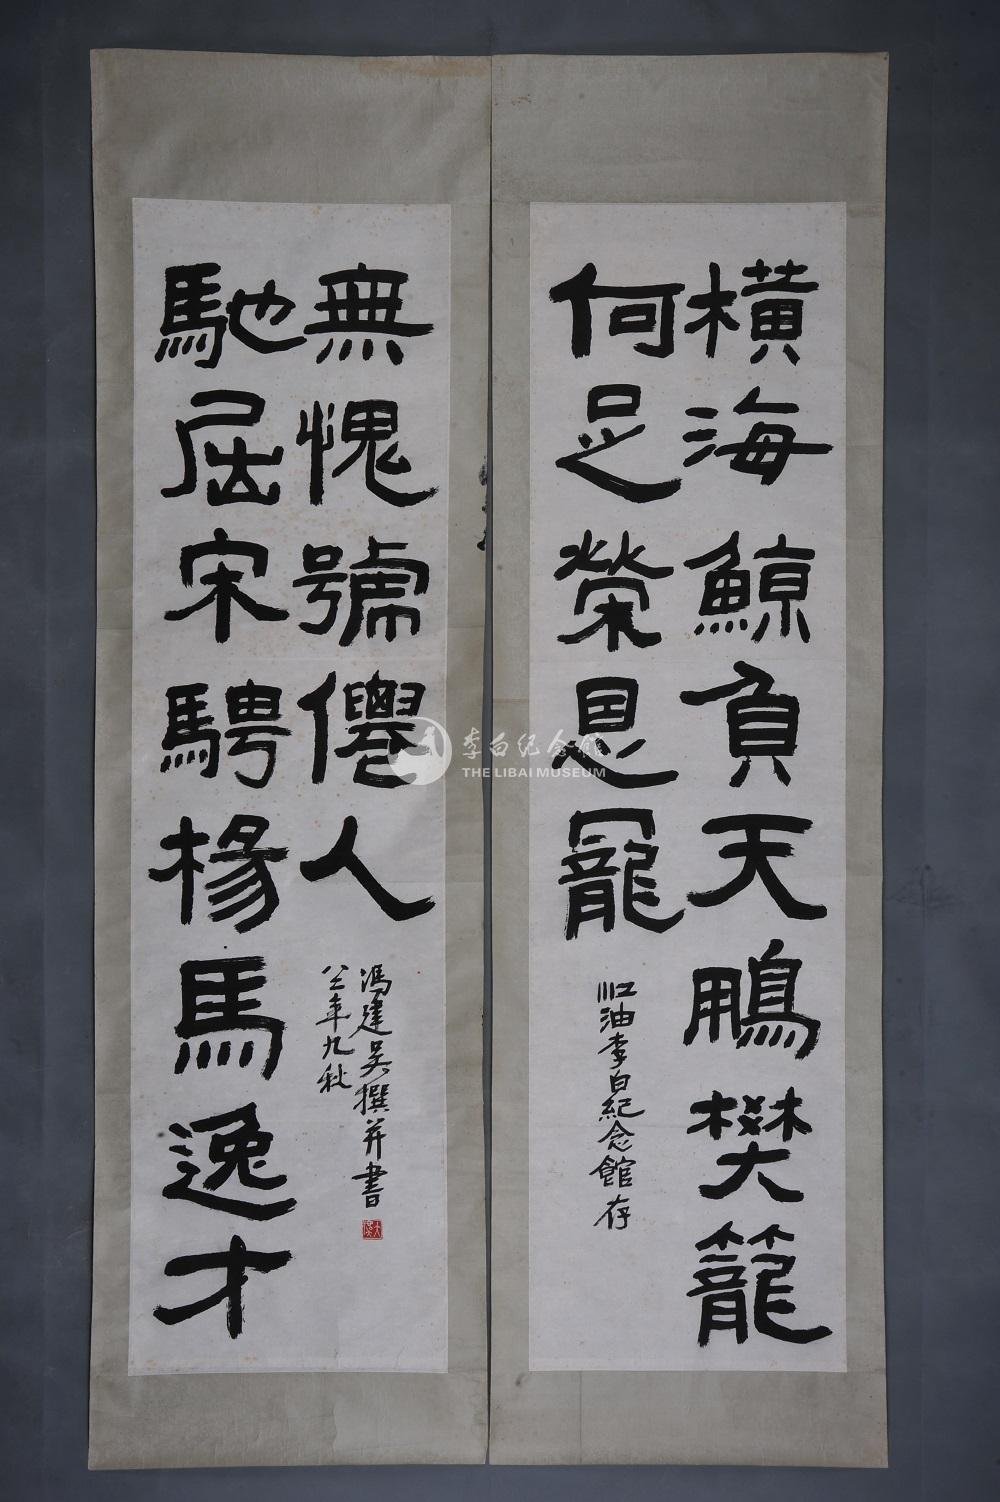 橫海鯨負天鵬樊籠
何足榮恩寵
江油李白紀念館存
馳屈宋騁楊馬逸才
無愧號僊人
馮建吳撰并書
八三年九秋
李白纪念馆
THE LIBAI MUSEUM